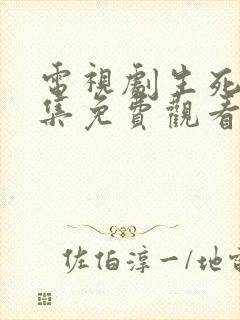 電視劇生死
集免費觀看
佐伯淳一/地